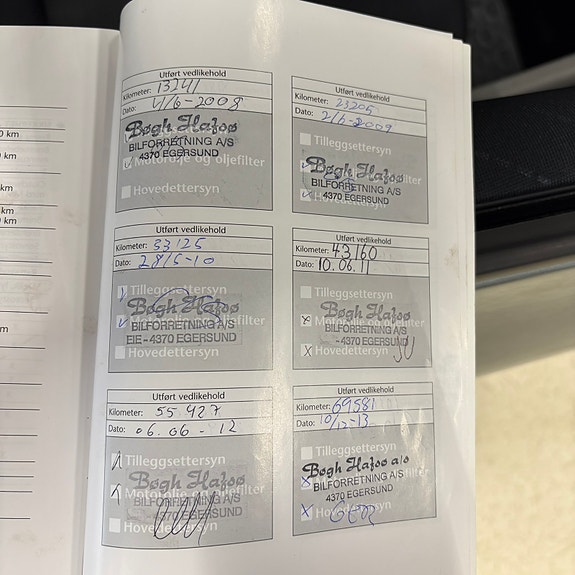 0 km
km
0 km
km
Utført vedlikehold
Kilometer: 13241
Dato: 4/6-2008
Bøgh Hafsø
BILFORRETNING A/S
Motorolje og oljefilter
4370 EGERSUND
Hovedettersyn
Utført vedlikehold
Kilometer: 23205
Dato: 2/6-2009
Tilleggsettersyn
Bøgh Hafsø
BILFORRETNING A/S
4370 EGERSUND
Utført vedlikehold
Kilometer: 33125
Dato: 28/5-10
Tilleggsettersyn
Bøgh Hafsø
Motorolje og oljefilter
BILFORRETNING A/S
EIE - 4370 EGERSUND
Hovedettersyn
Utført vedlikehold
Kilometer: 43160
Dato: 10.06.11
Tilleggsettersyn
Bøgh Hafsø
Motorolje og oljefilter
BILFORRETNING A/S
- 4370 EGERSUND
Hovedettersyn
Utført vedlikehold
Kilometer: 55 427
Dato: 06.06 - 12
Tilleggsettersyn
Bøgh Hafsø
Motorolje og oljefilter
BILFORRETNING A/S
EGERSUND
Hovedettersyn
Utført vedlikehold
Kilometer: 69581
Dato: 10/12-13
Tilleggsettersyn
Bøgh Hafsø a/s
BILFORRETNING A/S
4370 EGERSUND